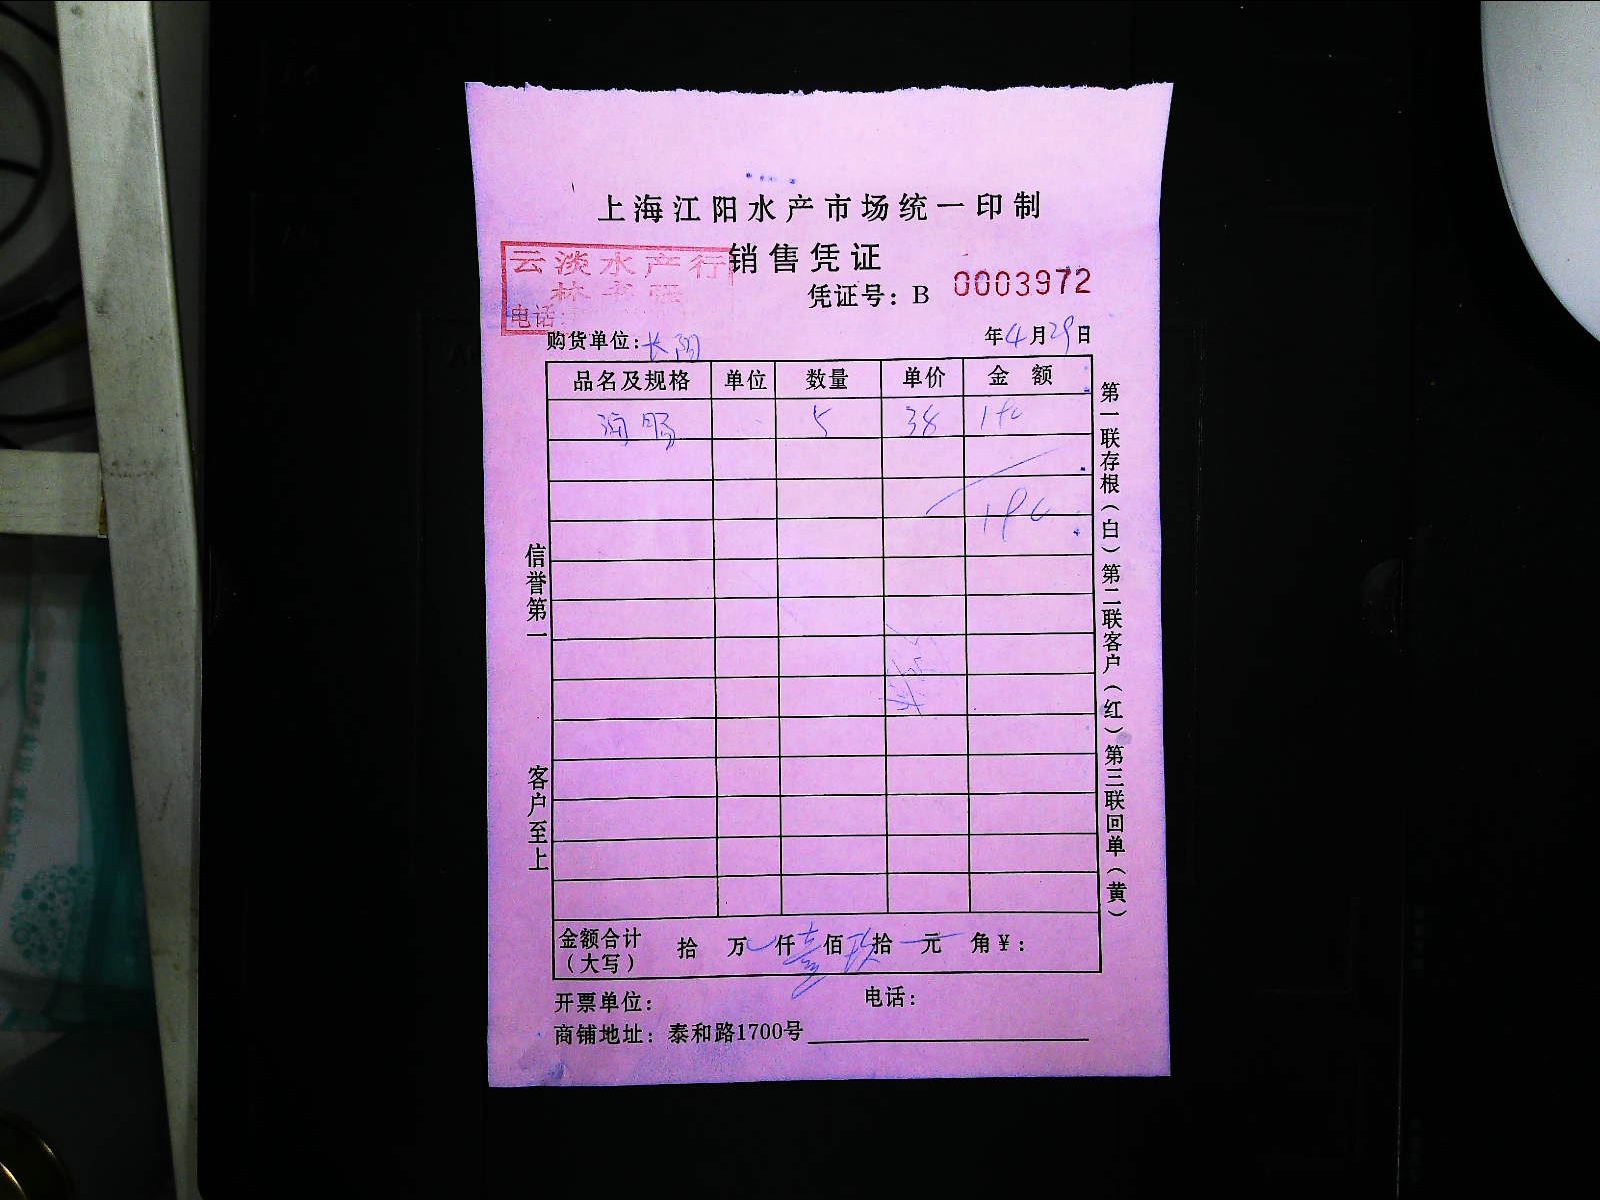 上海江阳水产市场统一印制
销售凭证
云淡水产行
电话:
凭证号：B 0003972
购货单位: 长阳
年4月29日
品名及规格 单位 数量 单价 金额
海肠 5 38 190
190
信誉第一
客户至上
第一联存根（白）第二联客户（红）第三联回单（黄）
金额合计（大写） 拾 万 仟 壹 佰 玖 拾 元 角 ¥:
开票单位: 电话:
商铺地址: 泰和路1700号